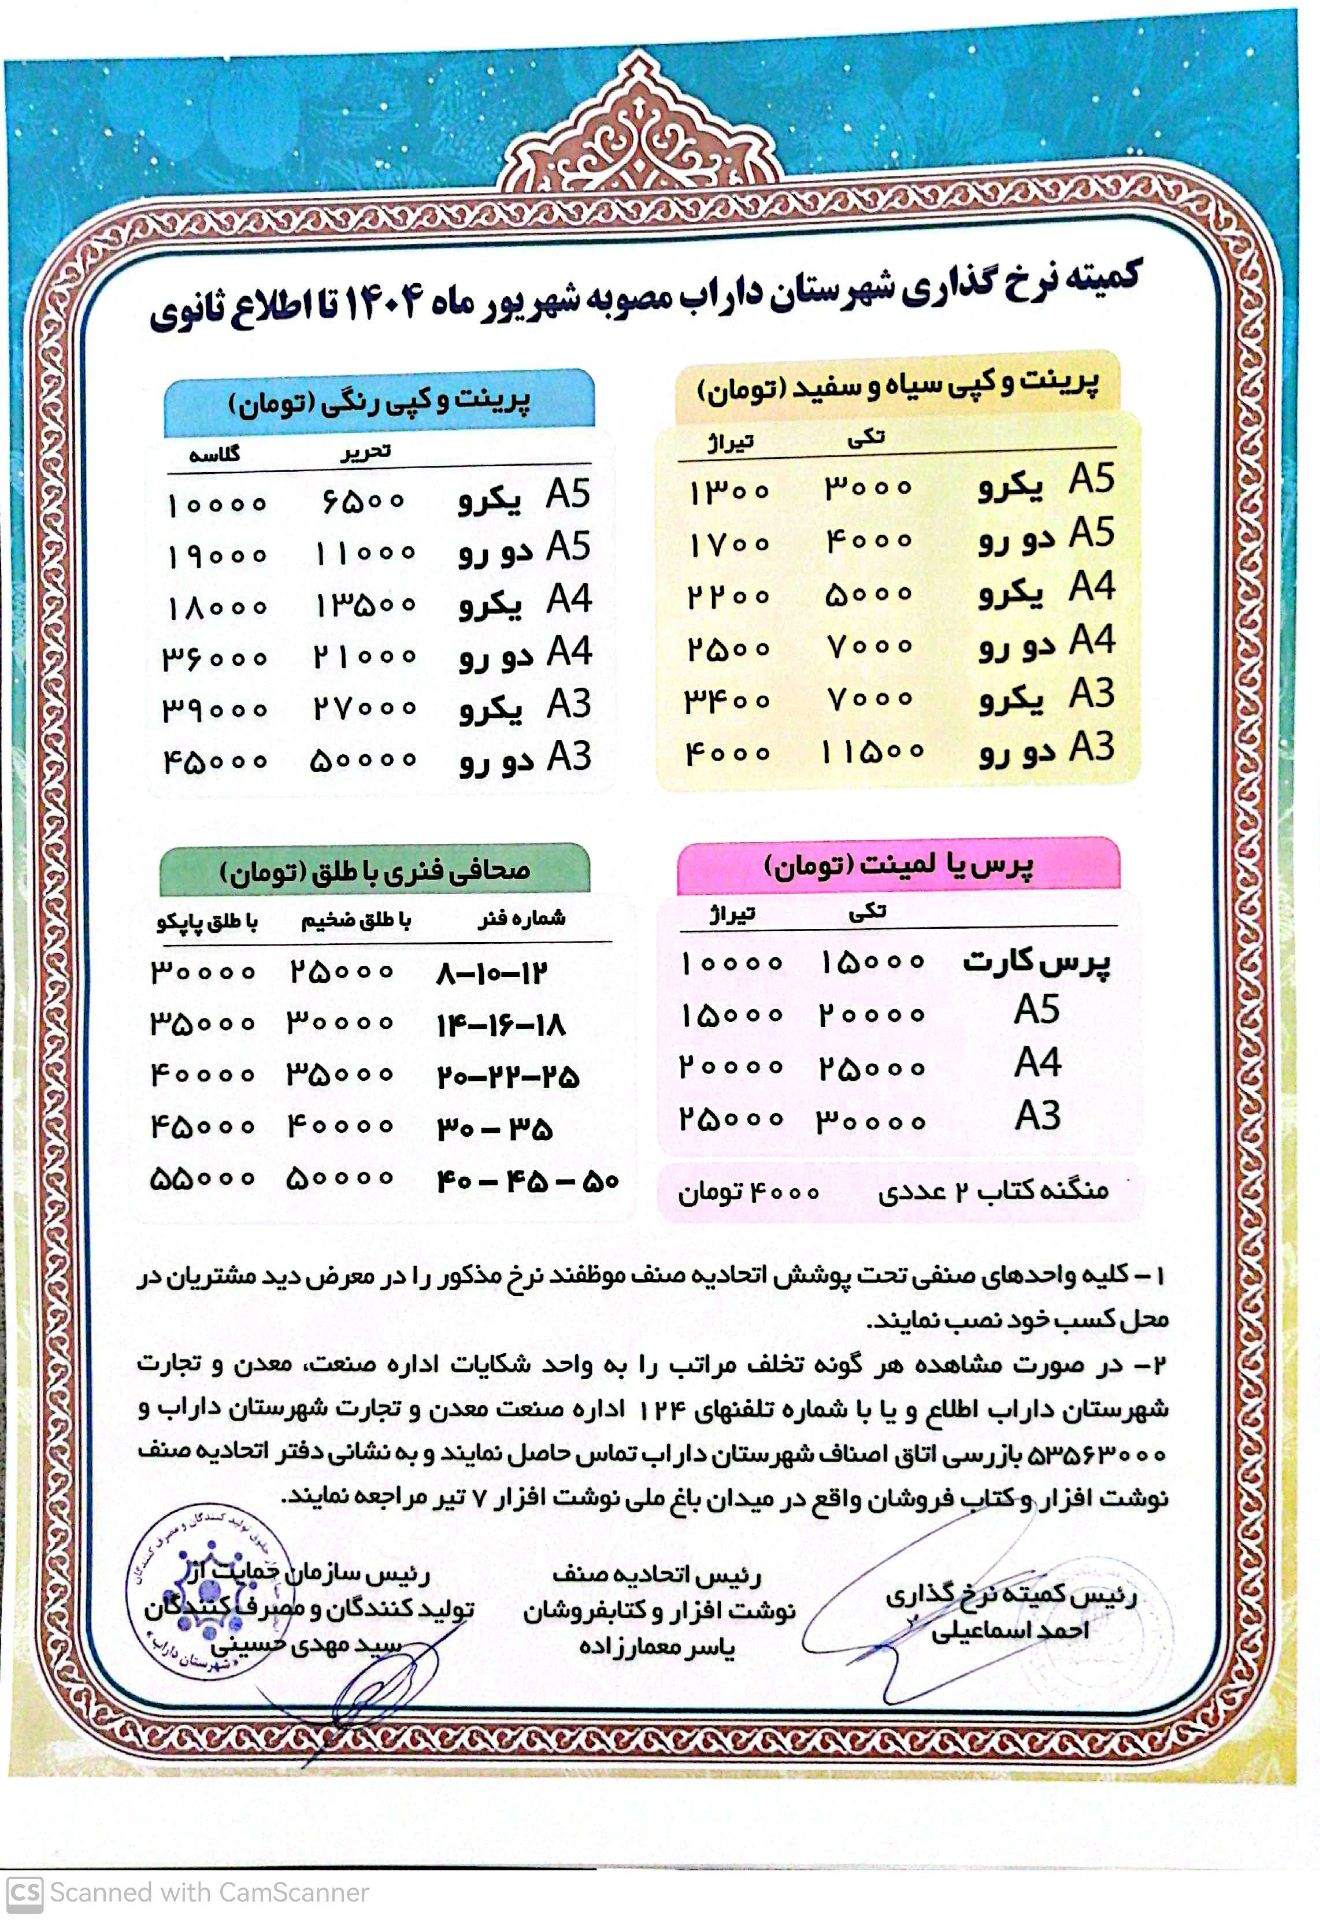 کمیته نرخ گذاری شهرستان داراب مصوبه شهریور ماه ۱۴۰۴ تا اطلاع ثانوی
پرینت و کپی سیاه و سفید (تومان)
تکی تیراژ
A5 یکرو ۳۰۰۰ ۱۳۰۰
A5 دو رو ۴۰۰۰ ۱۷۰۰
A4 یکرو ۵۰۰۰ ۲۲۰۰
A4 دو رو ۷۰۰۰ ۲۵۰۰
A3 یکرو ۷۰۰۰ ۳۴۰۰
A3 دو رو ۱۱۵۰۰ ۴۰۰۰
پرینت و کپی رنگی (تومان)
تحریر گلاسه
A5 یکرو ۶۵۰۰ ۱۰۰۰۰
A5 دو رو ۱۱۰۰۰ ۱۹۰۰۰
A4 یکرو ۱۳۵۰۰ ۱۸۰۰۰
A4 دو رو ۲۱۰۰۰ ۳۶۰۰۰
A3 یکرو ۲۷۰۰۰ ۳۹۰۰۰
A3 دو رو ۵۰۰۰۰ ۴۵۰۰۰
پرس یا لمینت (تومان)
تکی تیراژ
پرس کارت ۱۵۰۰۰ ۱۰۰۰۰
A5 ۲۰۰۰۰ ۱۵۰۰۰
A4 ۲۵۰۰۰ ۲۰۰۰۰
A3 ۳۰۰۰۰ ۲۵۰۰۰
منگنه کتاب ۲ عددی ۴۰۰۰ تومان
صحافی فنری با طلق (تومان)
شماره فنر با طلق ضخیم با طلق پاپکو
۸-۱۰-۱۲ ۲۵۰۰۰ ۳۰۰۰۰
۱۴-۱۶-۱۸ ۳۰۰۰۰ ۳۵۰۰۰
۲۰-۲۲-۲۵ ۳۵۰۰۰ ۴۰۰۰۰
۳۰ - ۳۵ ۴۰۰۰۰ ۴۵۰۰۰
۴۰ - ۴۵ - ۵۰ ۵۰۰۰۰ ۵۵۰۰۰
۱- کلیه واحدهای صنفی تحت پوشش اتحادیه صنف موظفند نرخ مذکور را در معرض دید مشتریان در
محل کسب خود نصب نمایند.
۲- در صورت مشاهده هر گونه تخلف مراتب را به واحد شکایات اداره صنعت، معدن و تجارت
شهرستان داراب اطلاع و یا با شماره تلفنهای ۱۲۴ اداره صنعت معدن و تجارت شهرستان داراب و
۵۳۵۶۳۰۰۰ بازرسی اتاق اصناف شهرستان داراب تماس حاصل نمایند و به نشانی دفتر اتحادیه صنف
نوشت افزار و کتاب فروشان واقع در میدان باغ ملی نوشت افزار ۷ تیر مراجعه نمایند.
رئیس کمیته نرخ گذاری
احمد اسماعیلی
رئیس اتحادیه صنف
نوشت افزار و کتابفروشان
یاسر معمارزاده
رئیس سازمان حمایت از
تولید کنندگان و مصرف کنندگان
سید مهدی حسینی
حقوق تولید کنندگان و مصرف کنندگان
شهرستان داراب
CS Scanned with CamScanner